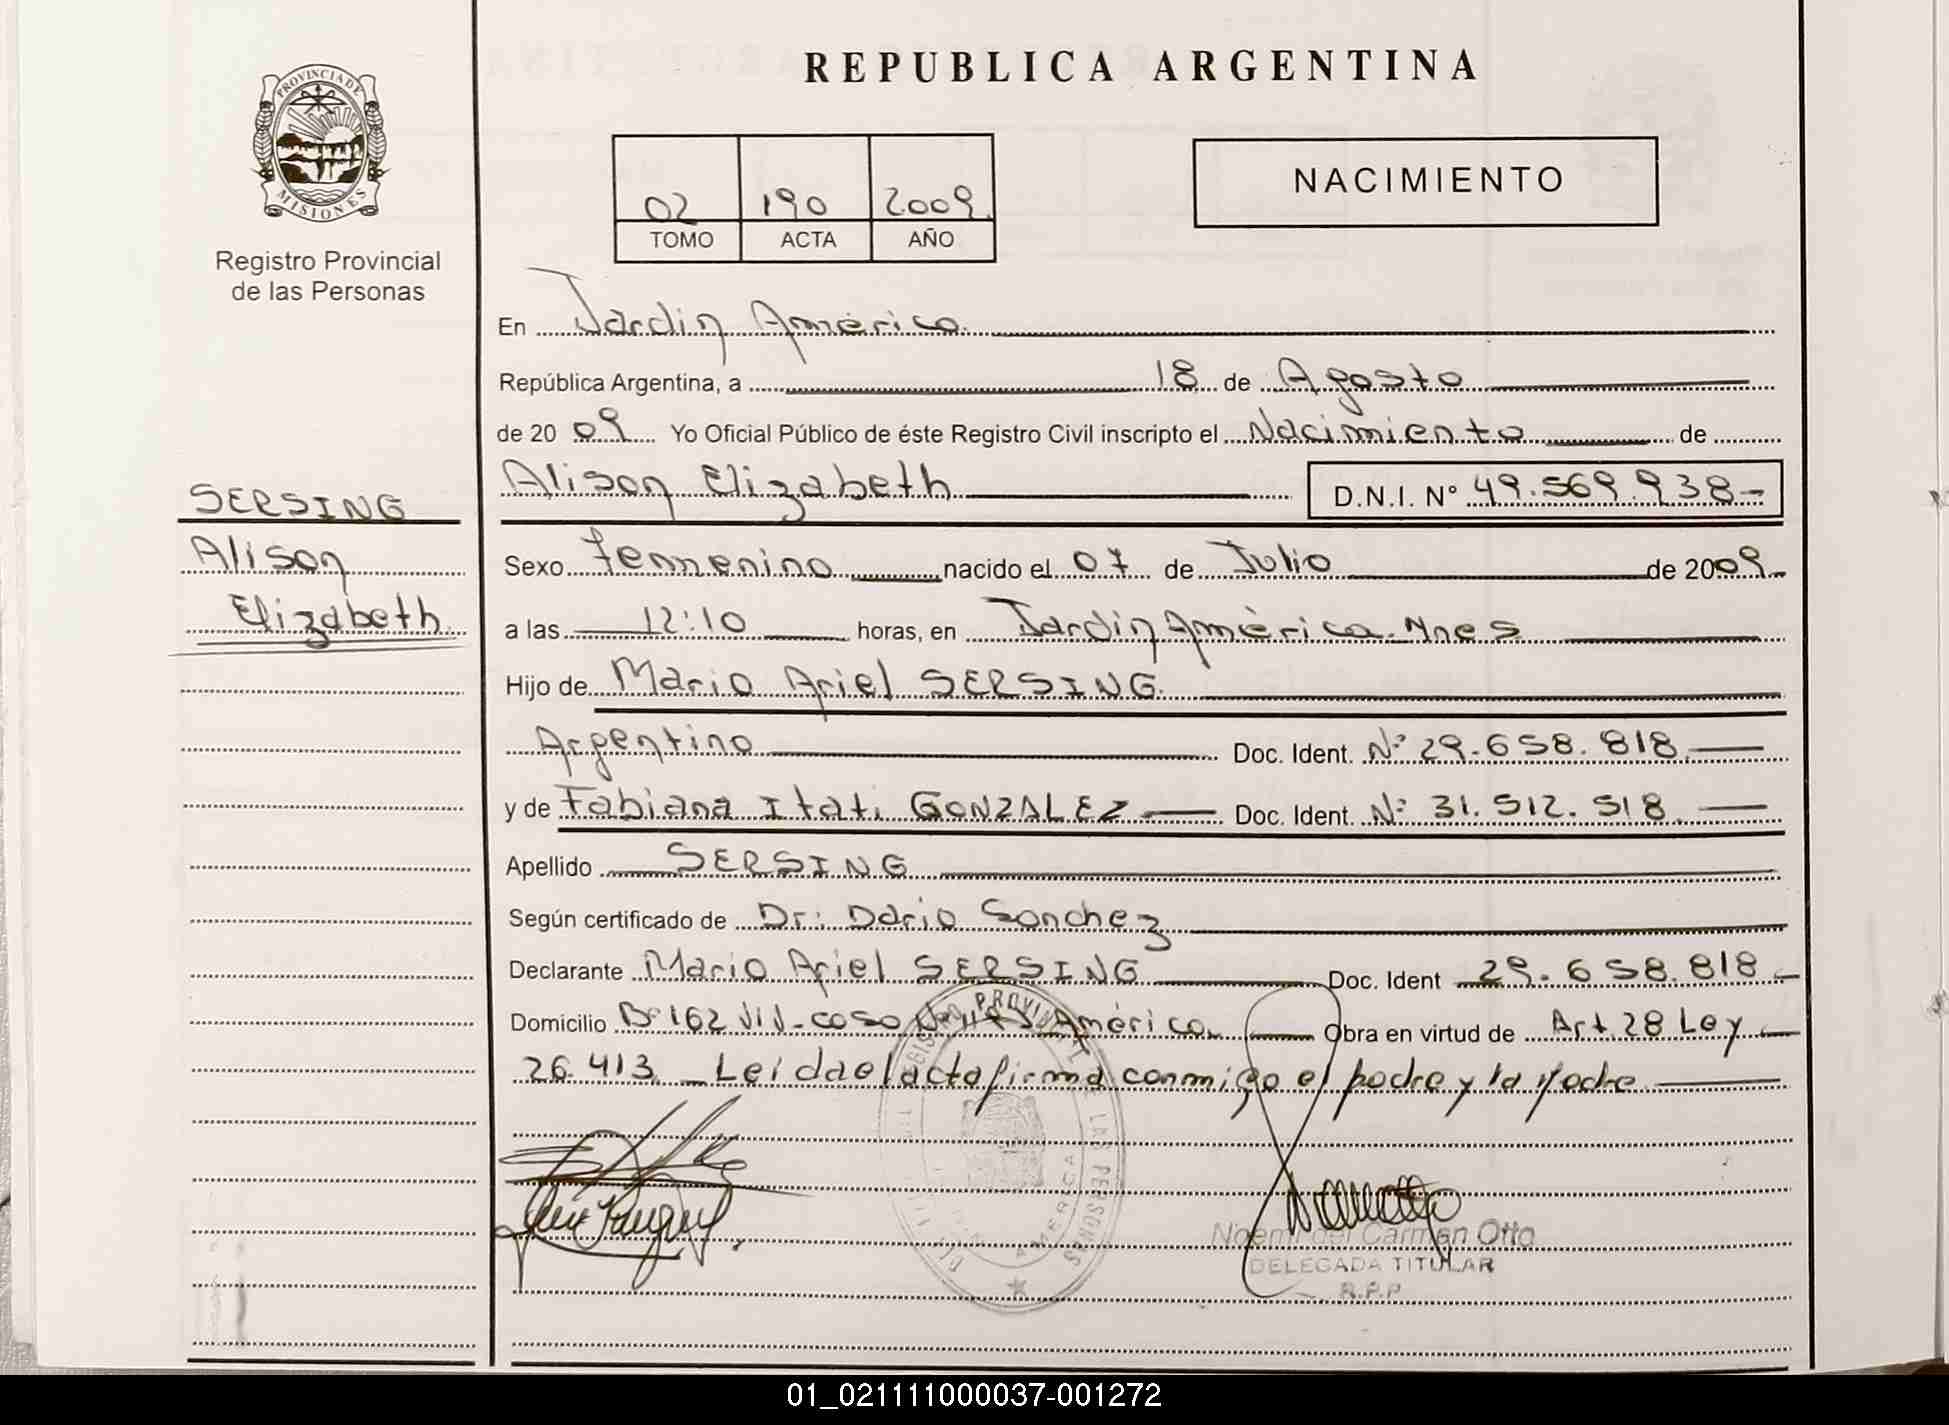 REPUBLICA ARGENTINA
PROVINCIA DE
MISIONES
Registro Provincial
de las Personas
02 190 2009
TOMO ACTA AÑO
NACIMIENTO
En Jardin América
República Argentina, a 18 de Agosto
de 20 09 Yo Oficial Público de éste Registro Civil inscripto el Nacimiento de
Alison Elizabeth D.N.I. N° 49.569.938-
SERSING
Alison
Elizabeth
Sexo Femenino nacido el 07 de Julio de 2009
a las 12:10 horas, en Jardin América. Mnes
Hijo de Mario Ariel SERSING
Argentino Doc. Ident. N° 29.658.818
y de Fabiana Itati GONZALEZ Doc. Ident. N° 31.512.518
Apellido SERSING
Según certificado de Dr: Dario Sanchez
Declarante Mario Ariel SERSING Doc. Ident 29.658.818
Domicilio B° 162 Viv- América Obra en virtud de Art. 28 Ley
26.413 Leida el acta firma conmigo el padre y la Madre
REGISTRO PROVINCIAL DE LAS PERSONAS
AMERICA
Noemi del Carmen Otto
DELEGADA TITULAR
R.P.P
01_021111000037-001272